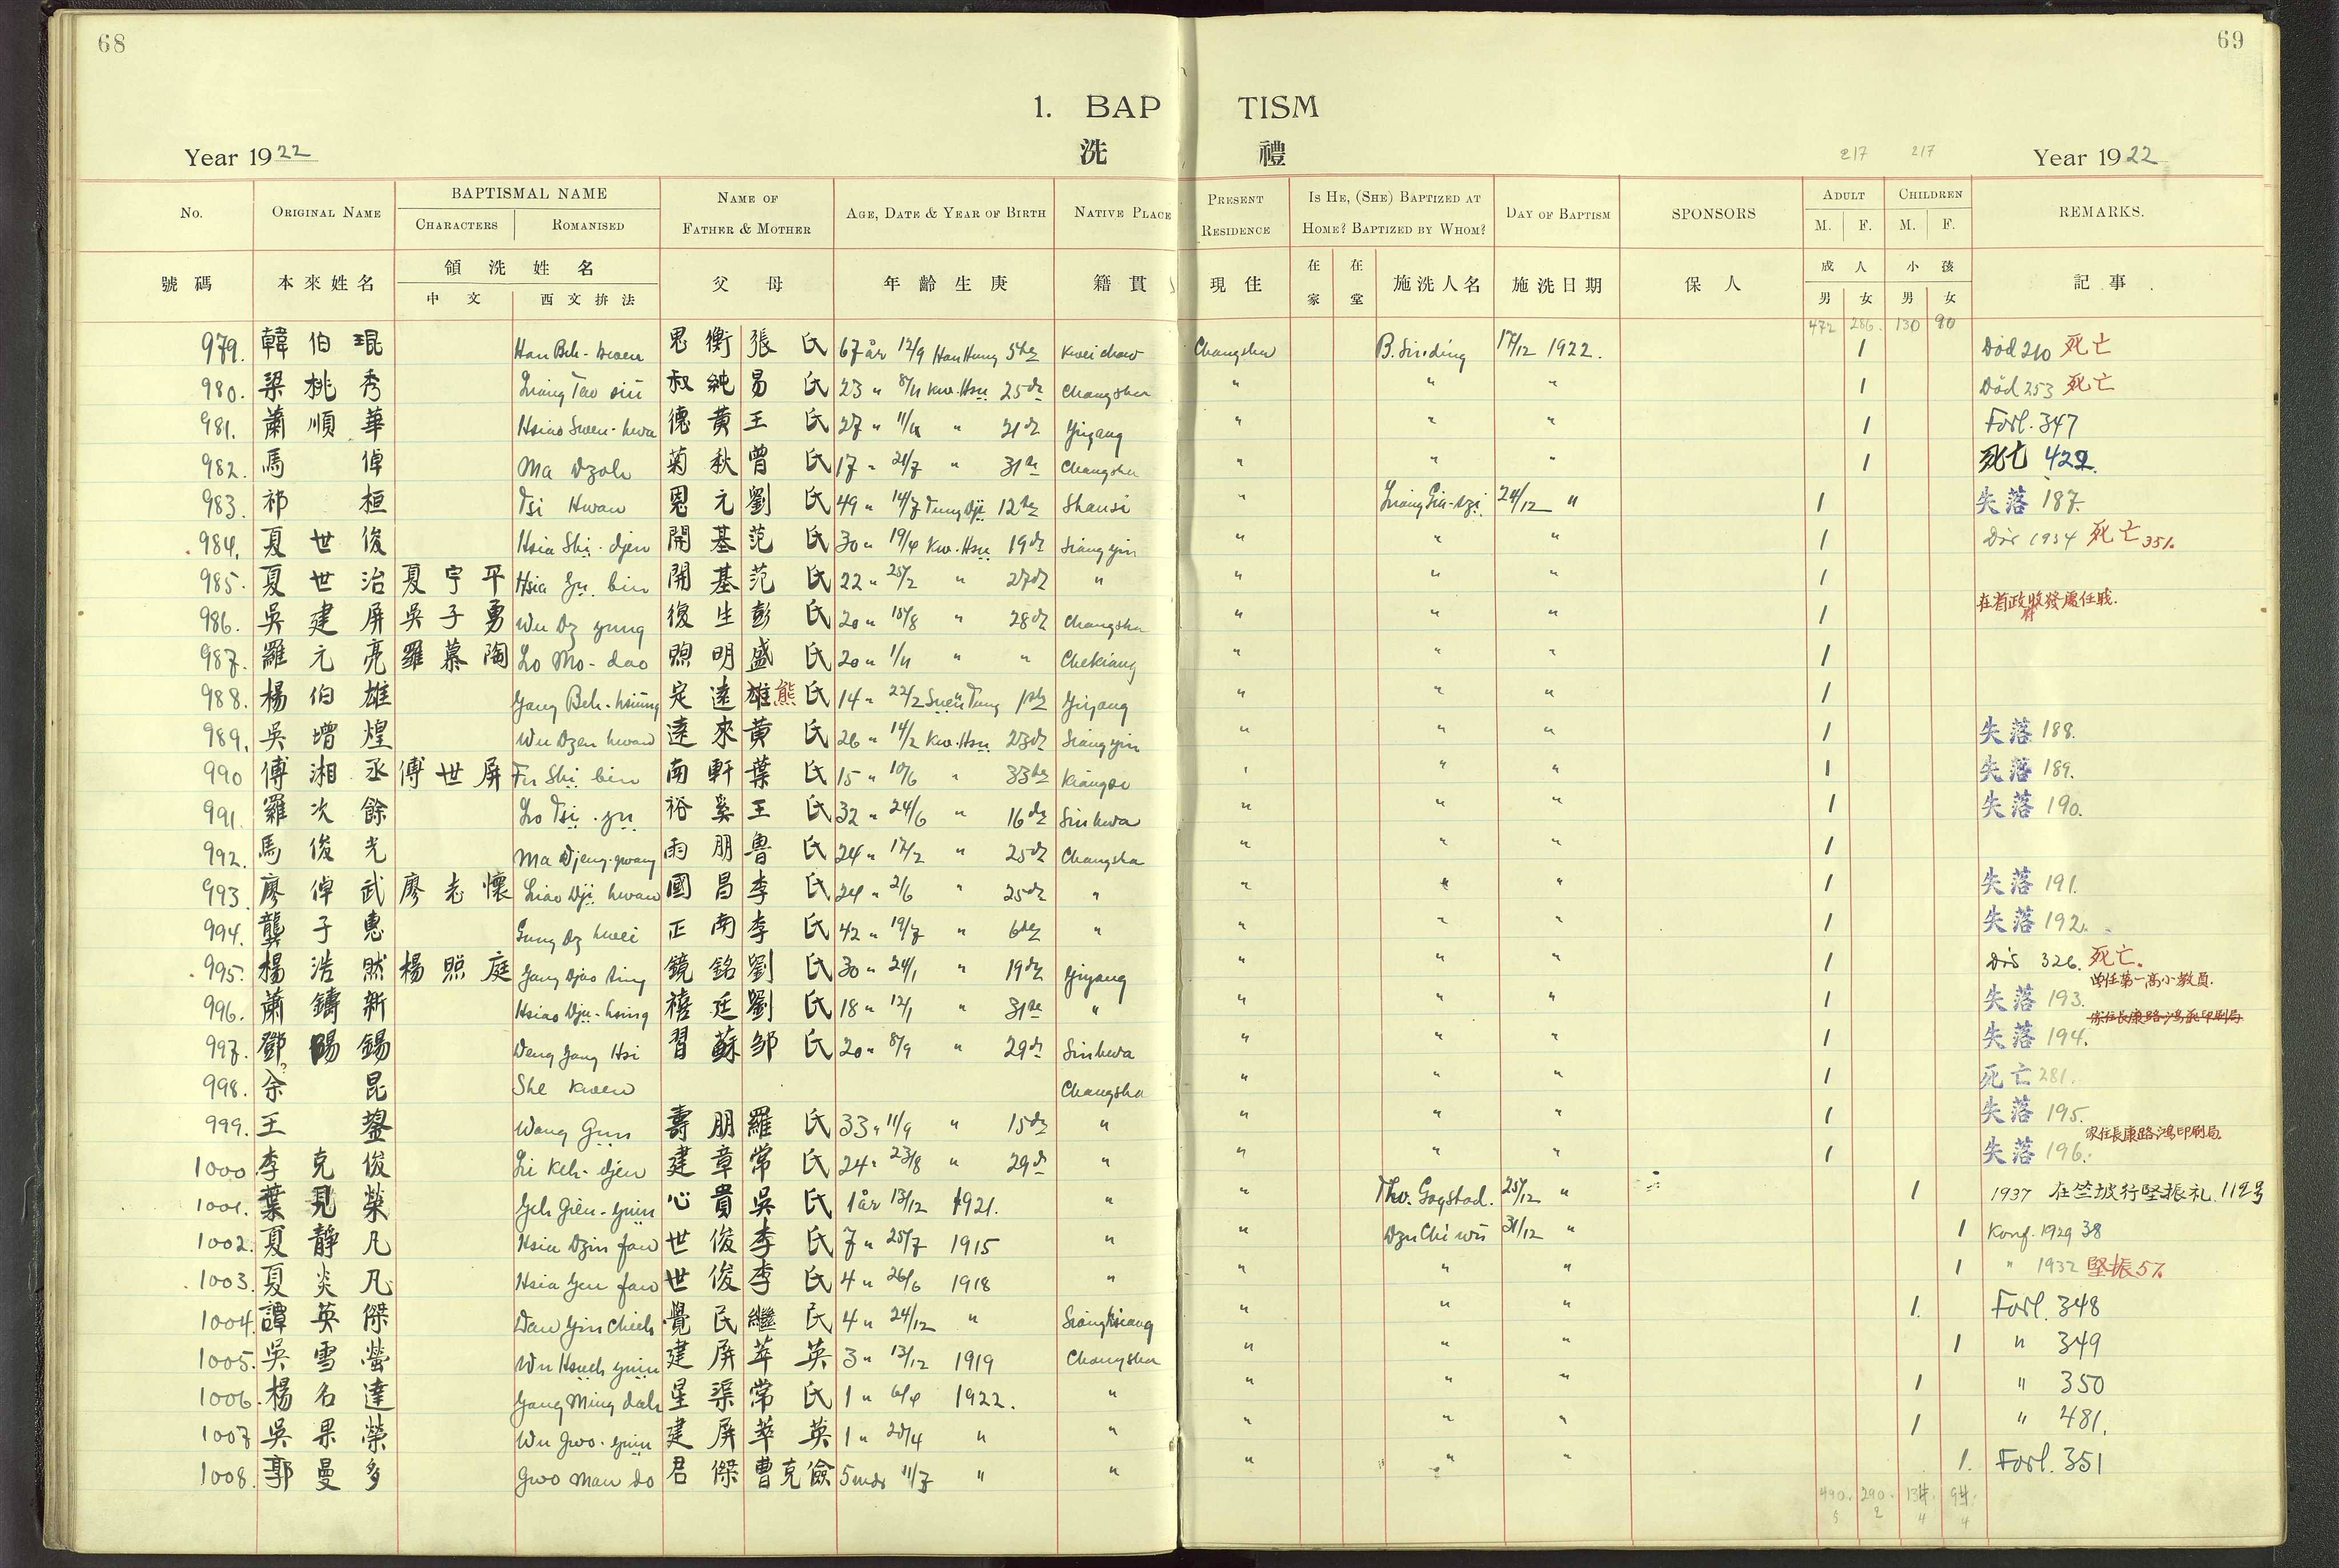 68
69
1. BAPTISM
洗 禮
Year 1922
217 217
Year 1922
No. ORIGINAL NAME BAPTISMAL NAME CHARACTERS ROMANISED NAME OF FATHER & MOTHER AGE, DATE & YEAR OF BIRTH NATIVE PLACE PRESENT RESIDENCE IS HE, (SHE) BAPTIZED AT HOME? BAPTIZED BY WHOM? DAY OF BAPTISM SPONSORS ADULT M. F. CHILDREN M. F. REMARKS.
號碼 本來姓名 領洗姓名 中文 西文拚法 父母 年齡生庚 籍貫 現住 在家 在堂 施洗人名 施洗日期 保人 成人 男 女 小孩 男 女 記事
472 286. 130 90
979. 韓伯琨 Han Beh-kwen 思衡 張氏 67 år 12/9 Han Hung 5te Kweichow Changsha B. Sinding 17/12 1922. 1 Död 210 死亡
980. 梁桃秀 Liang Tao siu 叔純 易氏 23 " 8/11 Kw. Hsu 25de Changsha " " " 1 Död 253 死亡
981. 蕭順華 Hsiao Swen-hwa 德黃 王氏 27 " 11/11 " 21de Yiyang " " " 1 Forl. 347
982. 馬倬 Ma Dzoh 菊秋 曾氏 17 " 21/7 " 31te Changsha " " " 1 死亡 422.
983. 祁桓 Tsi Hwan 恩元 劉氏 49 " 14/7 Tung Dji 12te Shansi " 24/12 " 1 失落 187.
984. 夏世俊 Hsia Shi-djen 開基 范氏 30 " 19/4 Kw. Hsu 19de Siangyin " " " 1 Dös 1934 死亡 351.
985. 夏世治 夏宇平 Hsia Yu bin 開基 范氏 22 " 25/2 " 27de " " " " 1
986. 吳建屏 吳子勇 Wu Dz yung 復生 彭氏 20 " 15/8 " 28de Changsha " " " 1 在省政府收發處任職.
987. 羅元亮 羅慕陶 Lo Mo-dao 煦明 盛氏 20 " 1/11 " " Chekiang " " " 1
988. 楊伯雄 Yang Beh-hsiung 定遠 雄熊氏 14 " 22/2 Suen Tung 1ste Yiyang " " " 1
989. 吳增煌 Wu Dzen hwan 遠來 黃氏 26 " 14/2 Kw. Hsu 23de Siangyin " " " 1 失落 188.
990 傅湘丞 傅世屏 Fu Shi bin 南軒 葉氏 15 " 10/6 " 33te Kiangsi " " " 1 失落 189.
991. 羅次餘 Lo Tsi-yu 裕奚 王氏 32 " 24/6 " 16de Sinhwa " " " 1 失落 190.
992. 馬俊光 Ma Djeng-gwang 雨朋 魯氏 24 " 17/2 " 25de Changsha " " " 1
993. 廖倬武 廖志懷 Liao Dji hwan 國昌 李氏 24 " 2/6 " 25de " " " " 1 失落 191.
994. 龔子惠 Gung Dz hwei 正南 李氏 42 " 19/7 " 6te " " " " 1 失落 192.
995. 楊浩然 楊照庭 Yang Djao ting 鏡銘 劉氏 30 " 24/1 " 19de Yiyang " " " 1 Dös 326. 死亡.
996. 蕭鑄新 Hsiao Dju-hsing 禧廷 劉氏 18 " 12/1 " 31te " " " " 1 失落 193. 曾任第一高小教員.
997. 鄧陽錫 Deng Yang Hsi 習蘇 邹氏 20 " 8/9 " 29de Sinhwa " " " 1 失落 194.
998. 余昆 She Kwen Changsha " " " 1 死亡 281.
999. 王鋆 Wang Gun 壽朋 羅氏 33 " 11/9 " 15de " " " " 1 失落 195.
1000. 李克俊 Li Keh-djen 建章 常氏 24 " 23/8 " 29de " " " " 1 失落 196. 家住長康路鴻印刷局.
1001. 葉見榮 Yeh Gien-yuin 心貴 吳氏 1 år 13/12 1921. " " Tho. Gogstad. 25/12 " 1 1937 在竺坡行堅振礼 112号
1002. 夏靜凡 Hsia Dzin fan 世俊 李氏 7 " 25/7 1915 " " Dzu Chi wu 31/12 " 1 Konf. 1929 38
1003. 夏炎凡 Hsia Yen fan 世俊 李氏 4 " 26/6 1918 " " " " 1 " 1932 堅振 57.
1004. 譚英傑 Dan Yin Chieh 覺民 繼民 4 " 24/12 " Sianghsiang " " " 1. Forl. 348
1005. 吳雪螢 Wu Hsueh yuin 建屏 萃英 3 " 13/12 1919 Changsha " " " 1 " 349
1006. 楊名達 Yang Ming dah 星渠 常氏 1 " 6/4 1922. " " " " 1 " 350
1007. 吳果榮 Wu Gwo-yuin 建屏 萃英 1 " 20/4 " " " " " 1 " 481.
1008. 郭曼多 Gwo Man do 君傑 曹克儉 5 mdr 11/7 " " " " " 1. Forl. 351
490. 290. 134. 94.
5 2 4 4